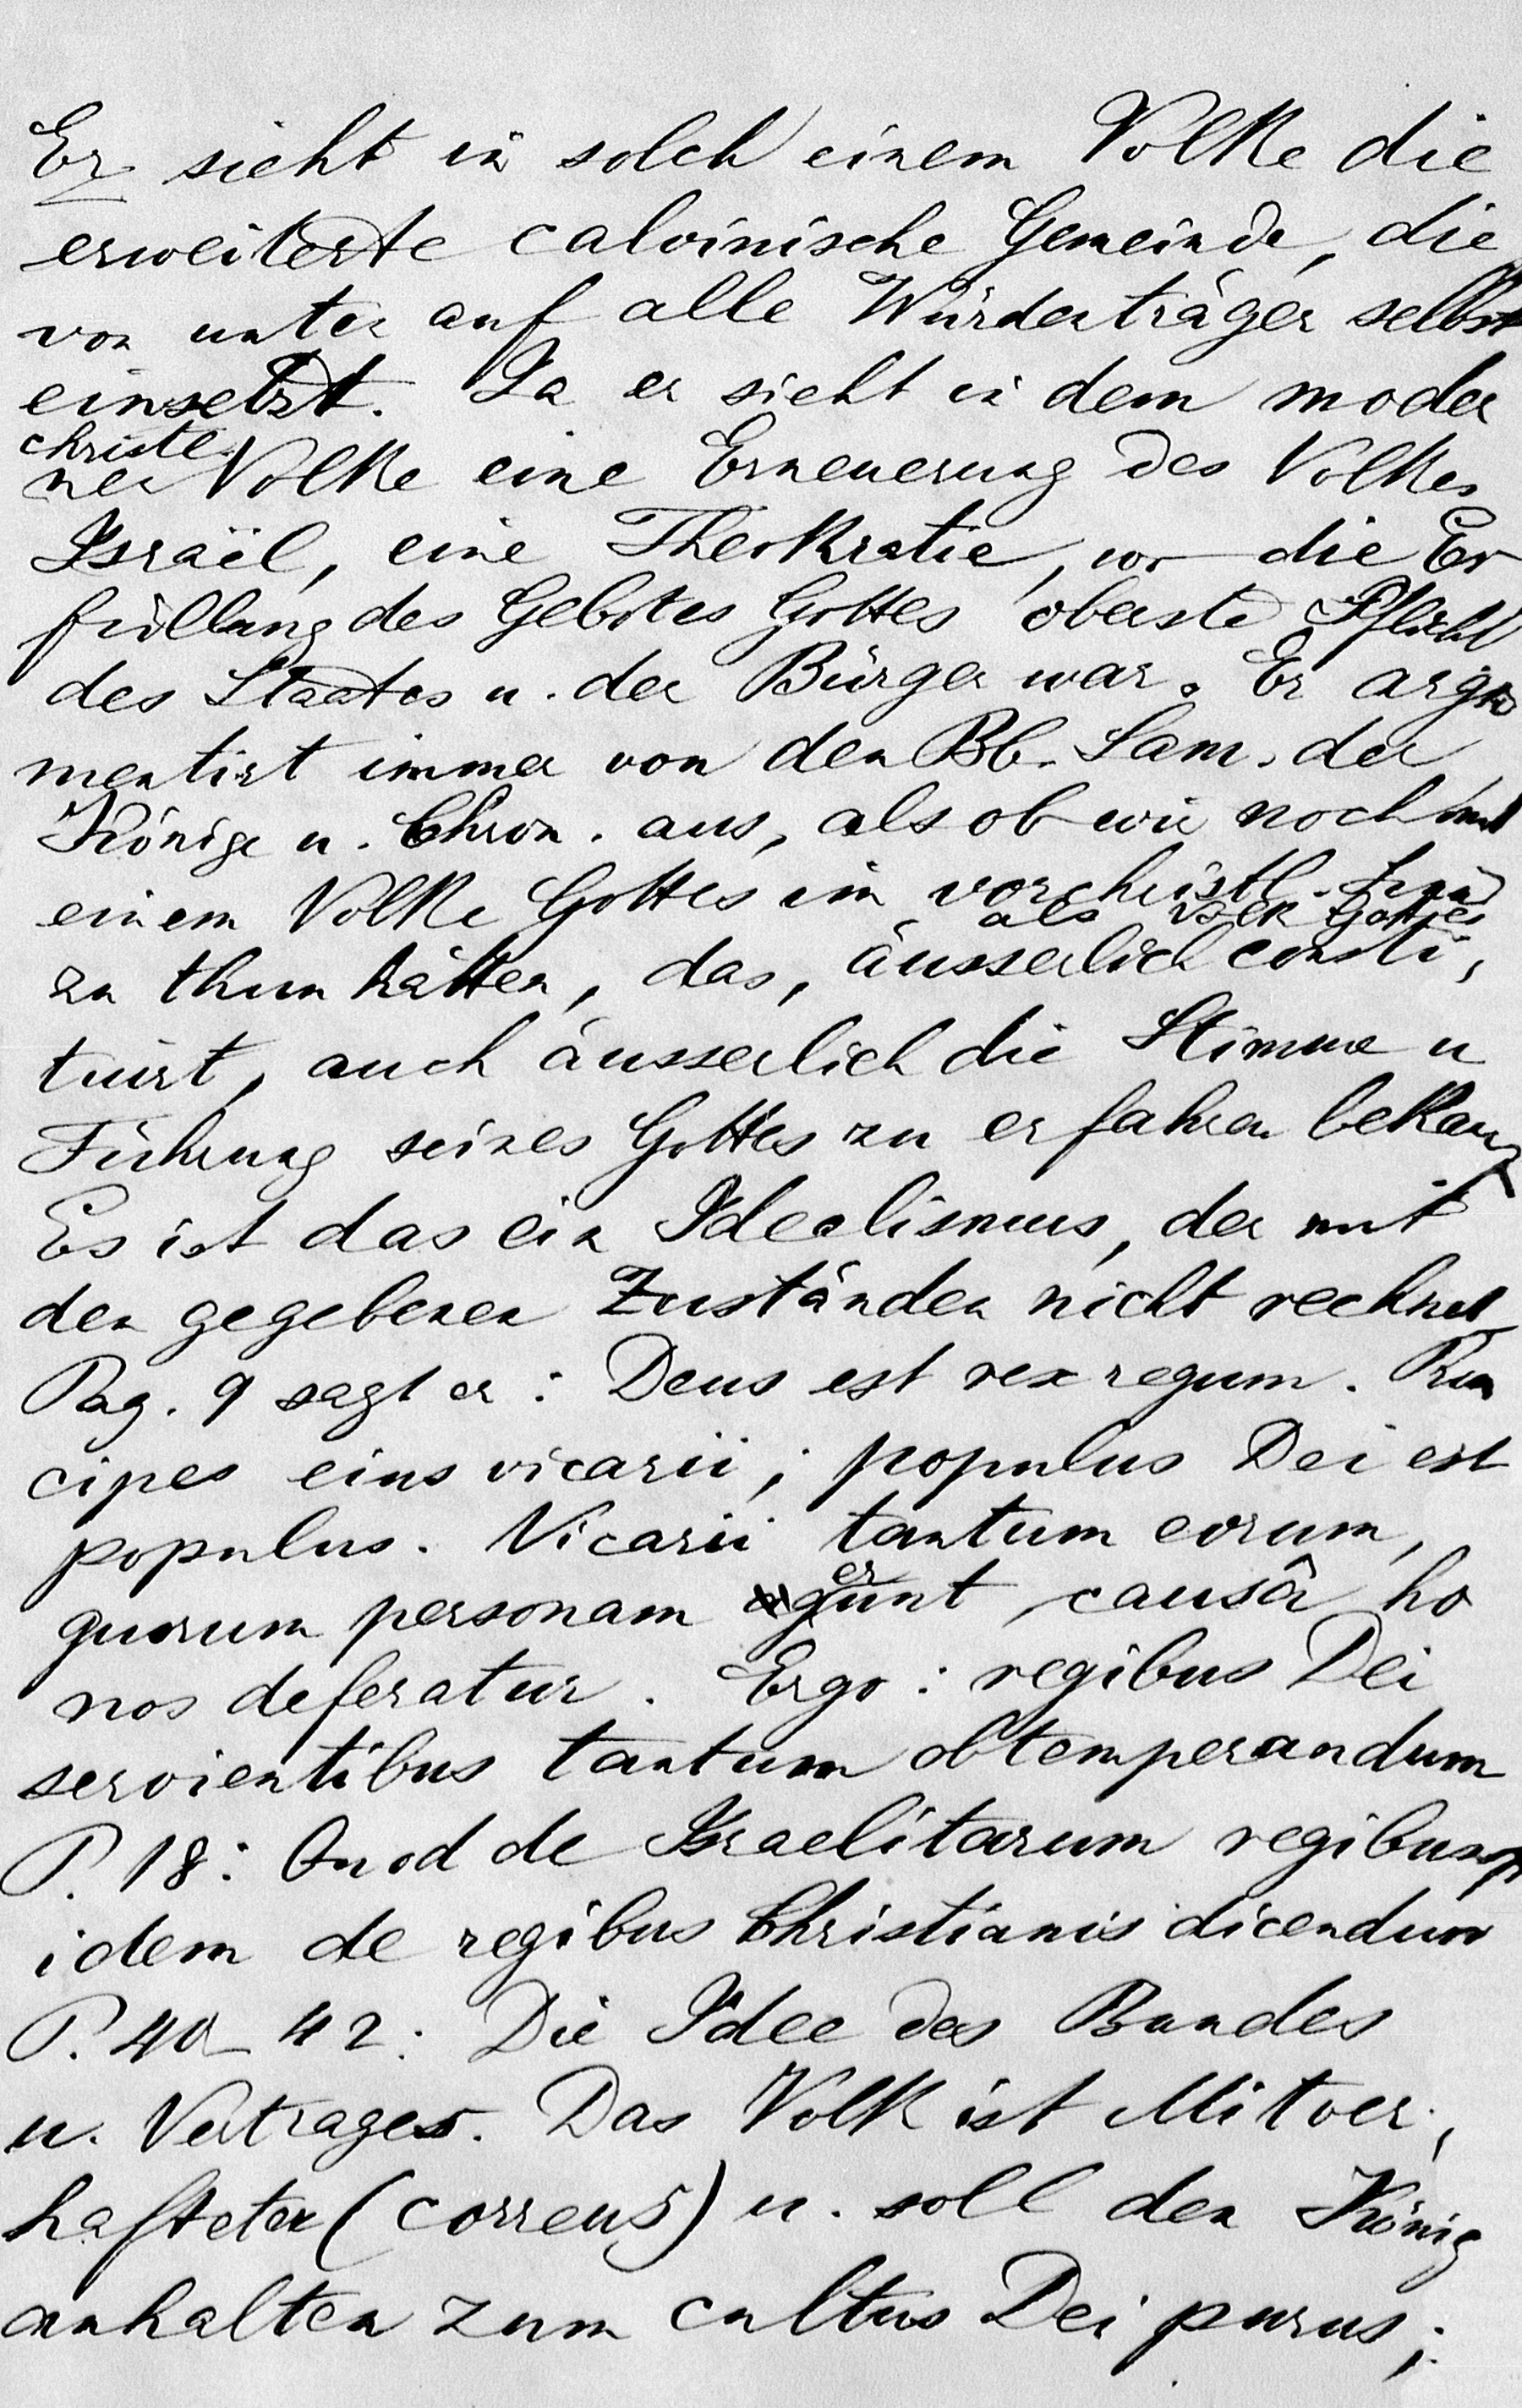 Er sieht in solch einem Volke die
erweiterte calvinische Gemeinde, die
von unten auf alle Würdenträger selbst
einsetzt. Ja er sieht in dem moder
christl.
nen Volke eine Erneuerung des Volkes
Israël, eine Theokratie, wo die Er
füllung des Gebotes Gottes oberste Pflicht
des Staates u. der Bürger war. Er argu
mentirt immer von den Bb. Sam. der
Könige u. Chron. aus, als ob wir noch mit
einem Volke Gottes im vorchristl. Sinn
als Volk Gottes
zu thun hätten, das, äusserlich consti,
tuirt, auch äusserlich die Stimme u
Führung seines Gottes zu erfahren bekam
Es ist das ein Idealismus, der mit
den gegebenen Zuständen nicht rechnet
Pag. 9 sagt er: Deus est rex regum. Prin
cipes eius vicarii; populus Dei est
populus. Vicarii tantum eorum,
er
quorum personam gunt causâ ho
nos deferatur. Ergo: regibus Dei
servientibus tantum obtemperandum
P. 18: Quod de Israelitarum regibus
idem de regibus Christianis dicendum
P. 40 42: Die Idee des Bundes
u. Vertrages. Das Volk ist Mitver,
hafteter (correus) u. soll den König
anhalten zum cultus Dei purus;